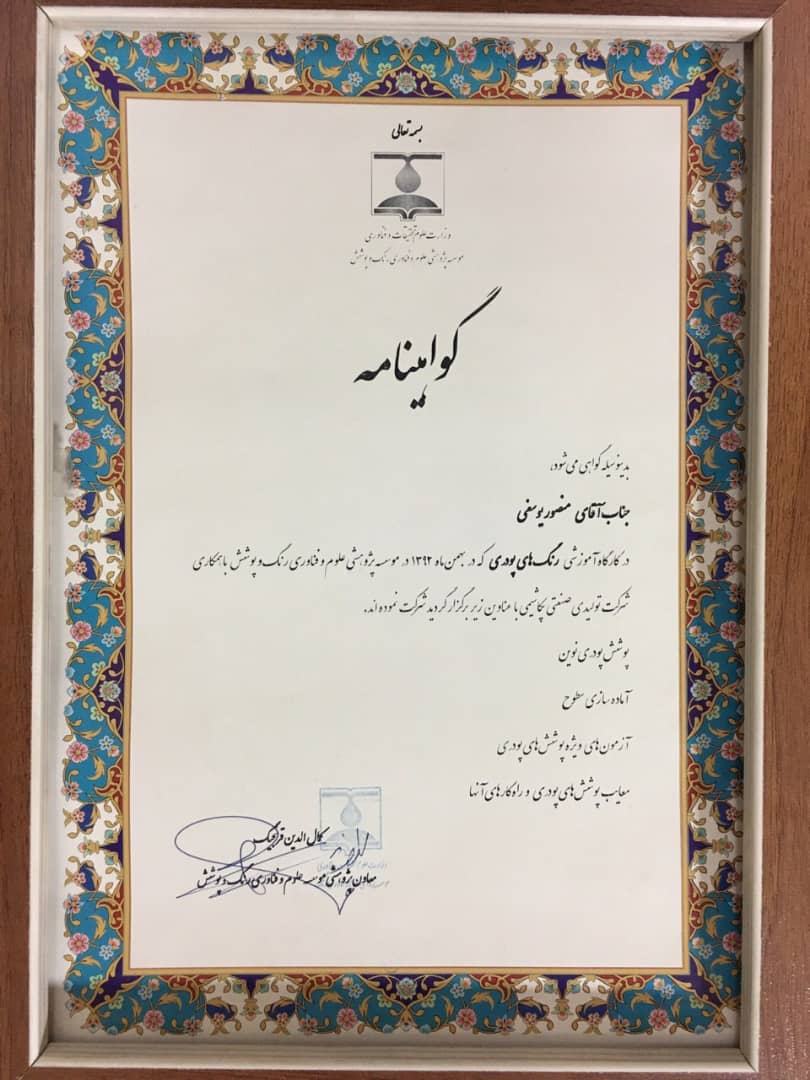 بسمه تعالی
وزارت علوم تحقیقات و فناوری
موسسه پژوهشی علوم و فناوری رنگ و پوشش
گواهینامه
بدینوسیله گواهی می شود،
جناب آقای منصور یوسفی
در کارگاه آموزشی رنگ های پودری که در بهمن ماه ۱۳۹۲ در موسسه پژوهشی علوم و فناوری رنگ و پوشش با همکاری
شرکت تولیدی صنعتی پکاشیمی با عناوین زیر برگزار گردید شرکت نموده اند.
پوشش پودری نوین
آماده سازی سطوح
آزمون های ویژه پوشش های پودری
معایب پوشش های پودری و راه کارهای آنها
کمال الدین قرنجیگ
معاون پژوهشی موسسه علوم و فناوری رنگ و پوشش